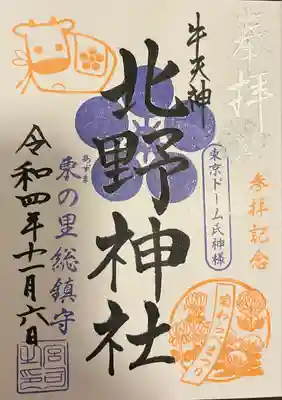 奉拝
参拝記念
牛天神
北野神社
東京ドーム氏神様
東の里総鎮守
令和四年十一月六日